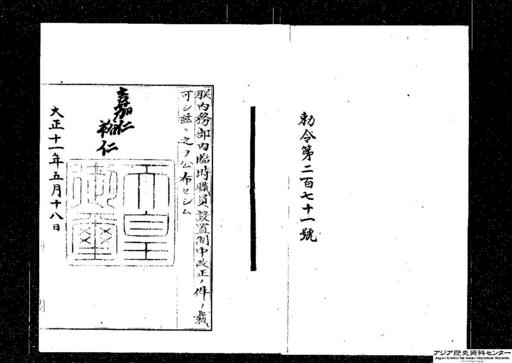 勅令第二百七十一號
朕內務部內臨時職員設置制中改正ノ件ヲ裁
可シ茲ニ之ヲ公布セシム
嘉仁
裕仁
天皇
御璽
大正十一年五月十八日
アジア歴史資料センター
Japan Center for Asian Historical Records